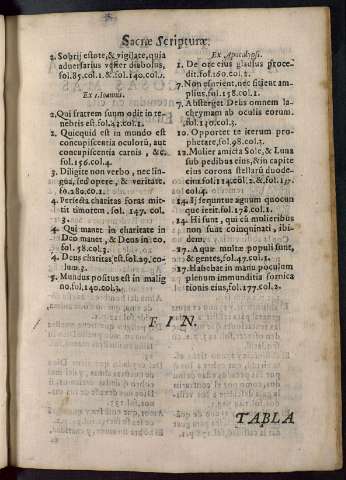 Sacræ Scripturæ.
2. Sobrij estote, & vigilate, quia
aduersarius vester diabolus,
fol.85.col.1. & fol.140.col.1.
Ex 1. Ioannis.
2. Qui fratrem suum odit in te-
nebris est. fol.43.col.1.
2. Quicquid est in mundo est
concupiscentia oculorũ, aut
concupiscentia carnis, &c.
fol.156.col.4.
3. Diligite non verbo, nec lin-
gua, sed opere, & veritate.
fo.280.co.1.
4. Perfecta charitas foras mit-
tit timorem, fol. 147. col.
3.
4. Qui manet in charitate in
Deo manet, & Deus in eo,
fol.58.col.3.
4. Deus charitas est. fol.29.co-
lum.3.
5. Mundus positus est in malig
no. fol.140.col.3.
Ex Apocalypsi.
1. De ore eius gladius proce-
dit. fol.260.col.1.
7. Non esurient, nec sitient am-
plius. fol.158.col.1.
7. Absterget Deus omnem la-
chrymam ab oculis eorum.
fol.140.col.3.
10. Oportet te iterum pro-
phetare, fol.98.col.3.
12. Mulier amicta Sole, & Luna
sub pedibus eius, & in capite
eius corona stellarũ duode-
cim fol.114.col.2. & fol.137.
col.4.
14. Ij sequntur agnum quocun
que ierit. fol.178.col.1.
14. Hi sunt, qui cũ mulieribus
non sunt coinquinati, ibi-
dem.
17. Aquæ multæ populi sunt,
& gentes, fol.47.col.1.
17. Habebat in manu poculum
plenum immunditia fornica
tionis eius, fol.177.col.2.
FIN.
TABLA